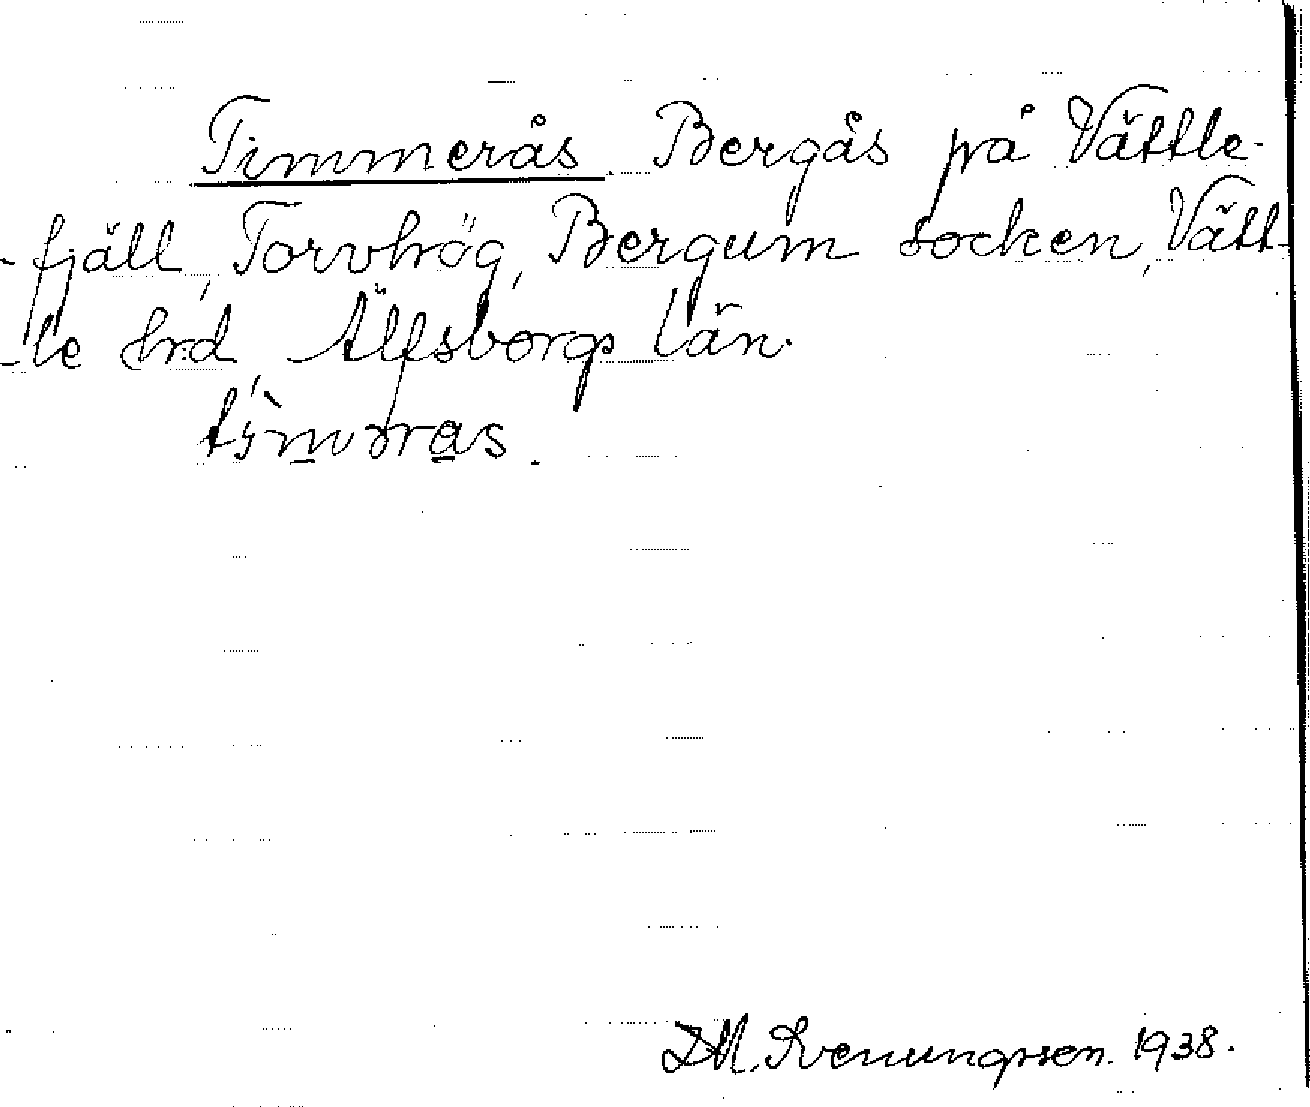 Timmerås. Bergås på Vättle-
-fjäll, Torvhög, Bergum socken, Vätt-
-le hrd, Älfsborgs län.
D.M. Kvenungssen. 1938.